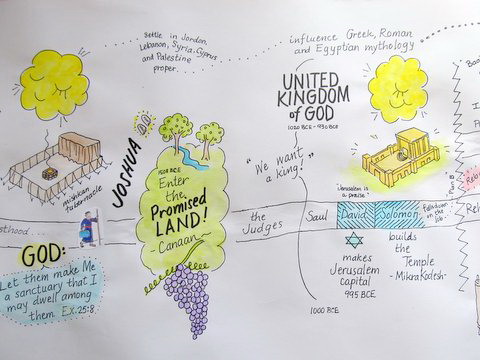 Settle in Jordan,
Lebanon, Syria, Cyprus
and Palestine
proper...
influence Greek, Roman
and Egyptian mythology
UNITED
KINGDOM
of GOD
1020 BCE - 930 BCE
mishkan
tabernacle
JOSHUA
Enter
the
Promised
LAND!
Canaan
"We want
a king!"
"Jerusalem is
a praise"
Plan B
sthood...
the
Judges
Saul
David
Solomon
GOD:
Let them make Me
a sanctuary that I
may dwell among
them. Ex. 25:8
makes
Jerusalem
capital
995 BCE
builds
the
Temple
- MikraKodesh -
1000 BCE
Boo
Rebu
Reh